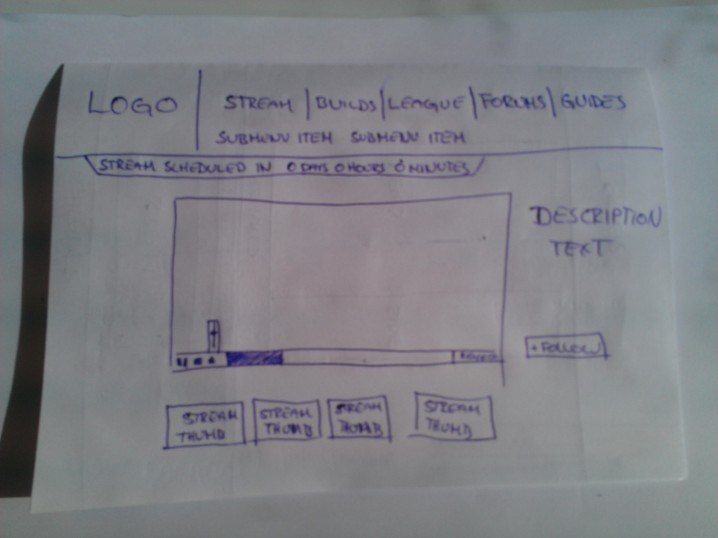 LOGO
STREAM | BUILDS | LEAGUE | FORUMS | GUIDES
SUBMENU ITEM SUBMENU ITEM
STREAM SCHEDULED IN 0 DAYS 0 HOURS 0 MINUTES
DESCRIPTION
TEXT
+ FOLLOW
STREAM
THUMB
STREAM
THUMB
STREAM
THUMB
STREAM
THUMB